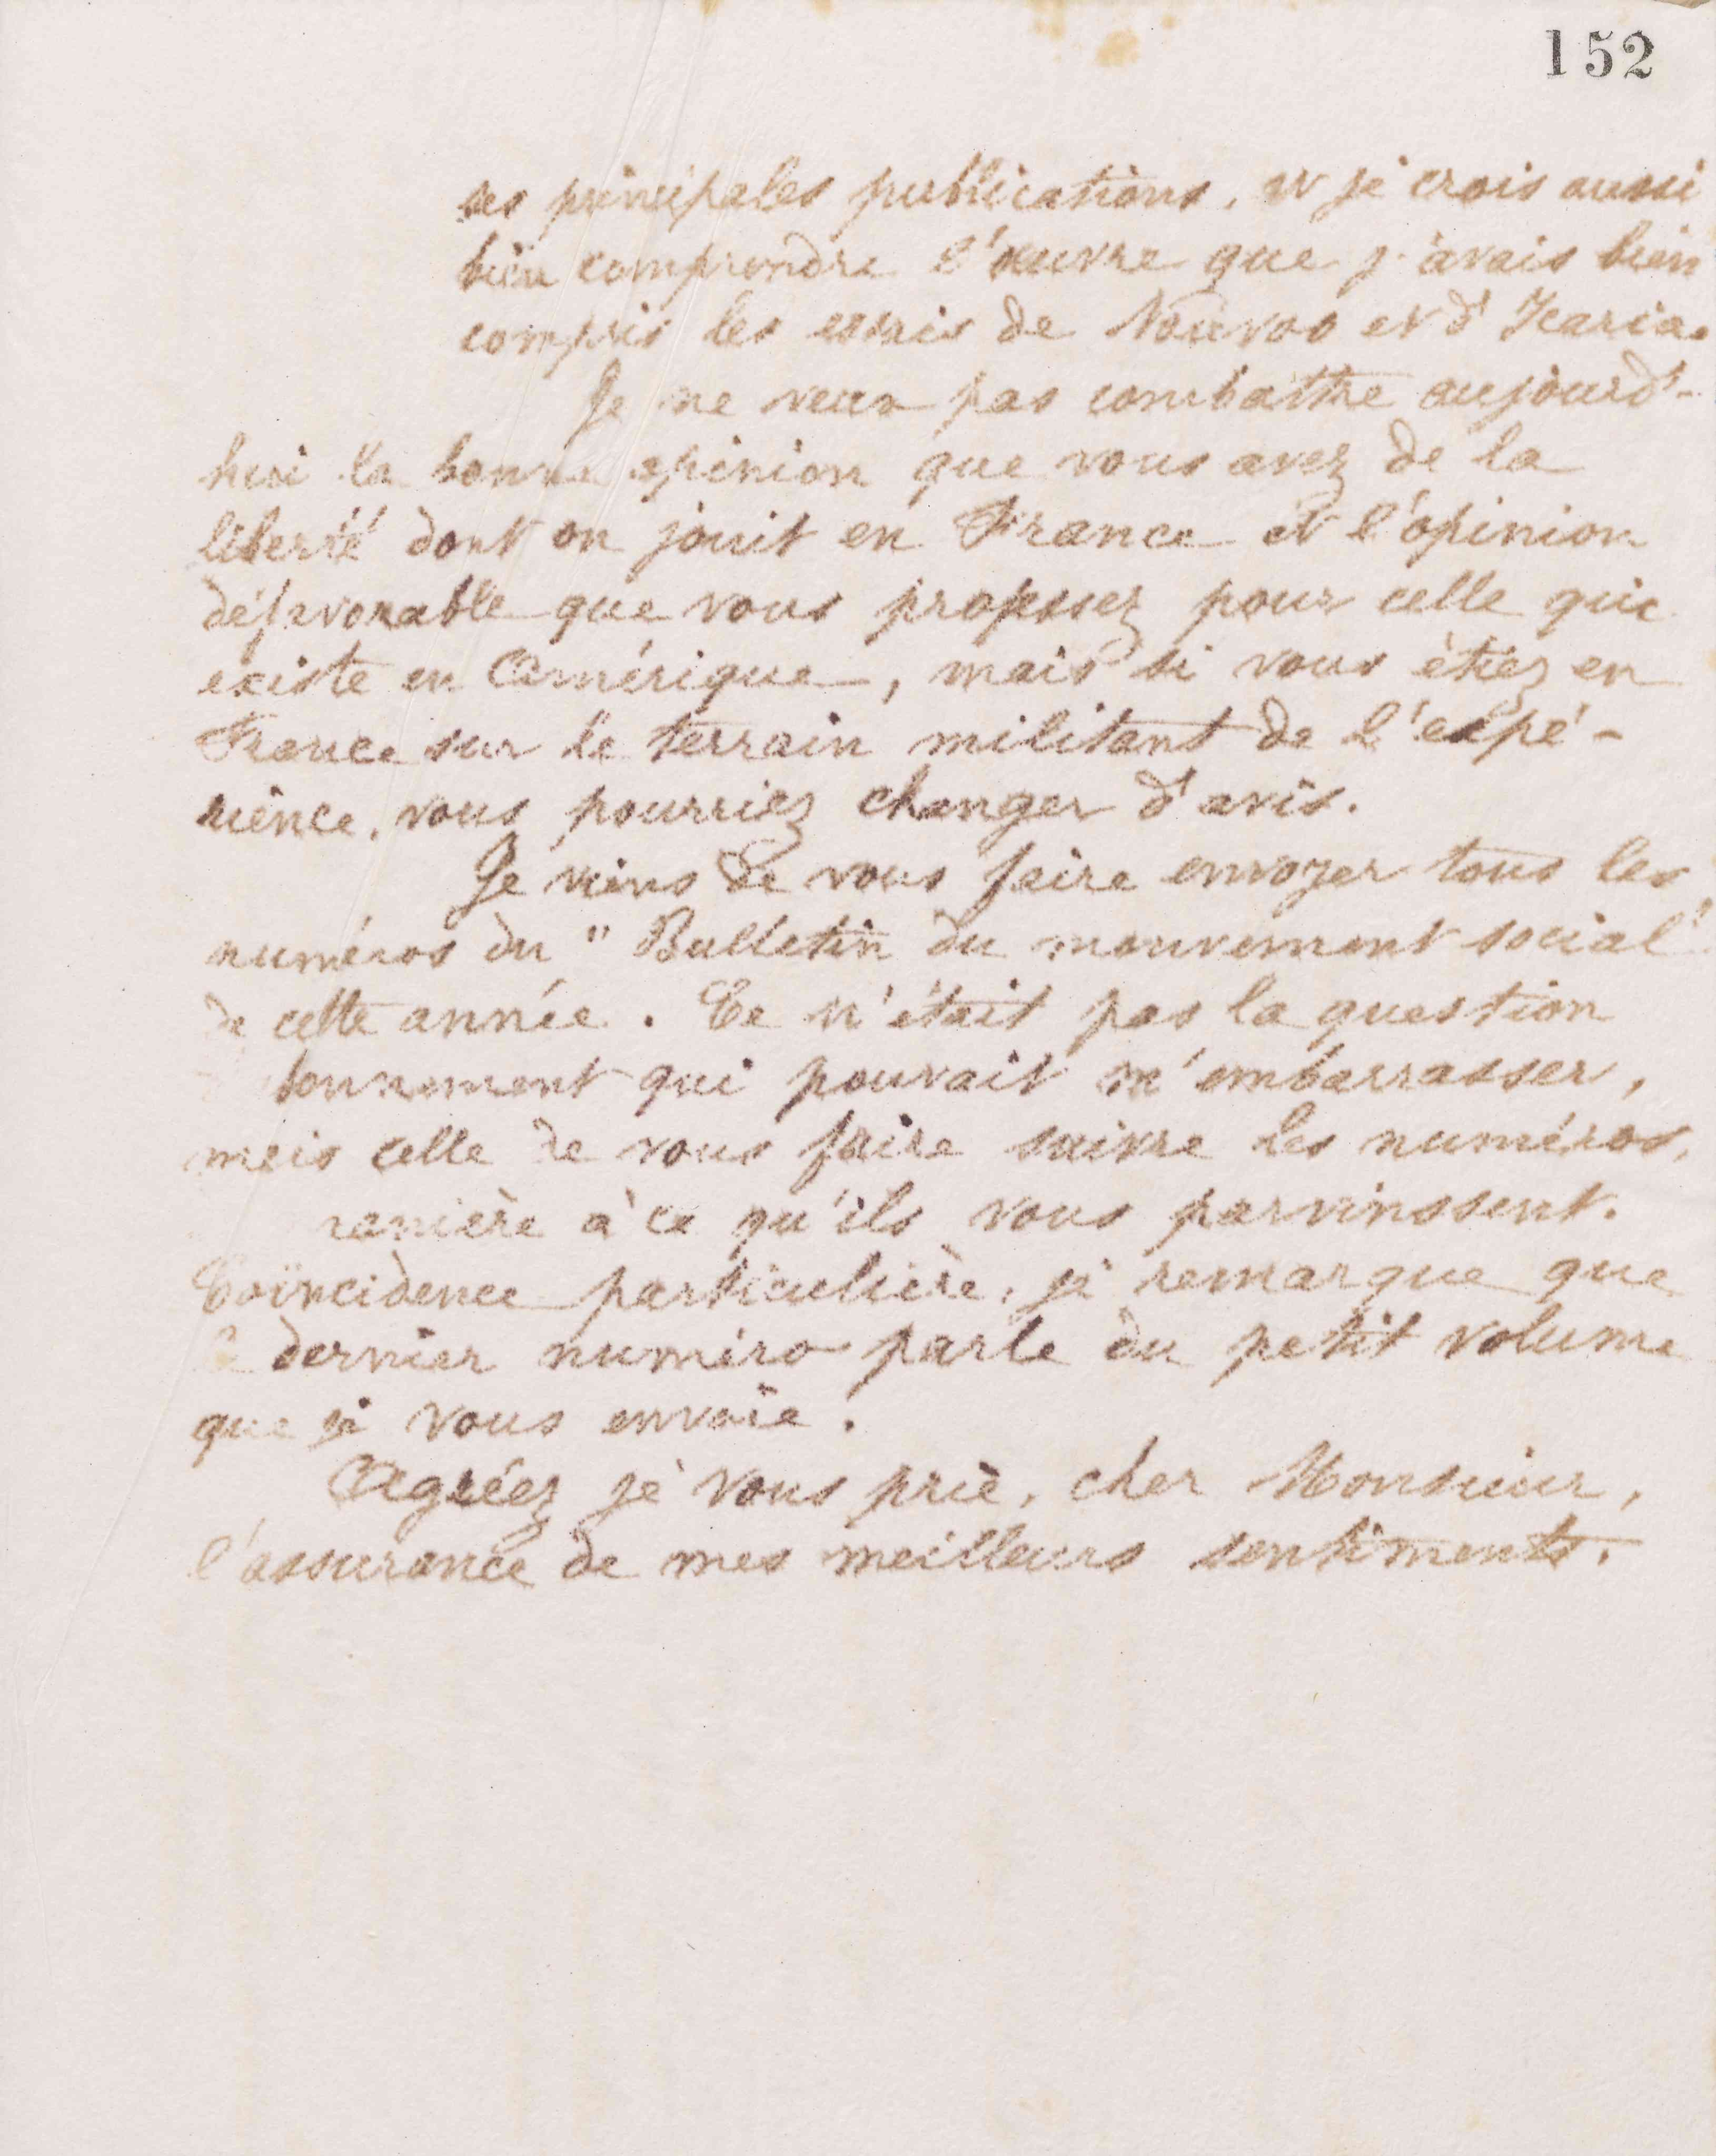 152
ses principales publications, et je crois aussi
bien comprendre l'œuvre que j'avais bien
compris les essais de Nauvoo et d'Icaria.
Je ne veux pas combattre aujourd'-
hui la bonne opinion que vous avez de la
liberté dont on jouit en France et l'opinion
défavorable que vous professez pour celle qui
existe en Amérique, mais si vous étiez en
France sur le terrain militant de l'expé-
rience, vous pourriez changer d'avis.
Je viens de vous faire envoyer tous les
numéros du "Bulletin du mouvement social"
de cette année. Ce n'était pas la question
bonnement qui pouvait m'embarrasser,
mais celle de vous faire suivre les numéros,
manière à ce qu'ils vous parvinssent.
Coïncidence particulière, je remarque que
le dernier numéro parle du petit volume
que je vous envoie.
Agréez je vous prie, cher Monsieur,
l'assurance de mes meilleurs sentiments.